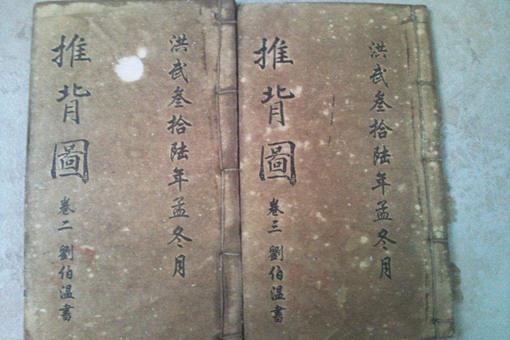 洪武叁拾陸年孟冬月
推背圖 卷三 劉伯溫書
洪武叁拾陸年孟冬月
推背圖 卷二 劉伯溫書